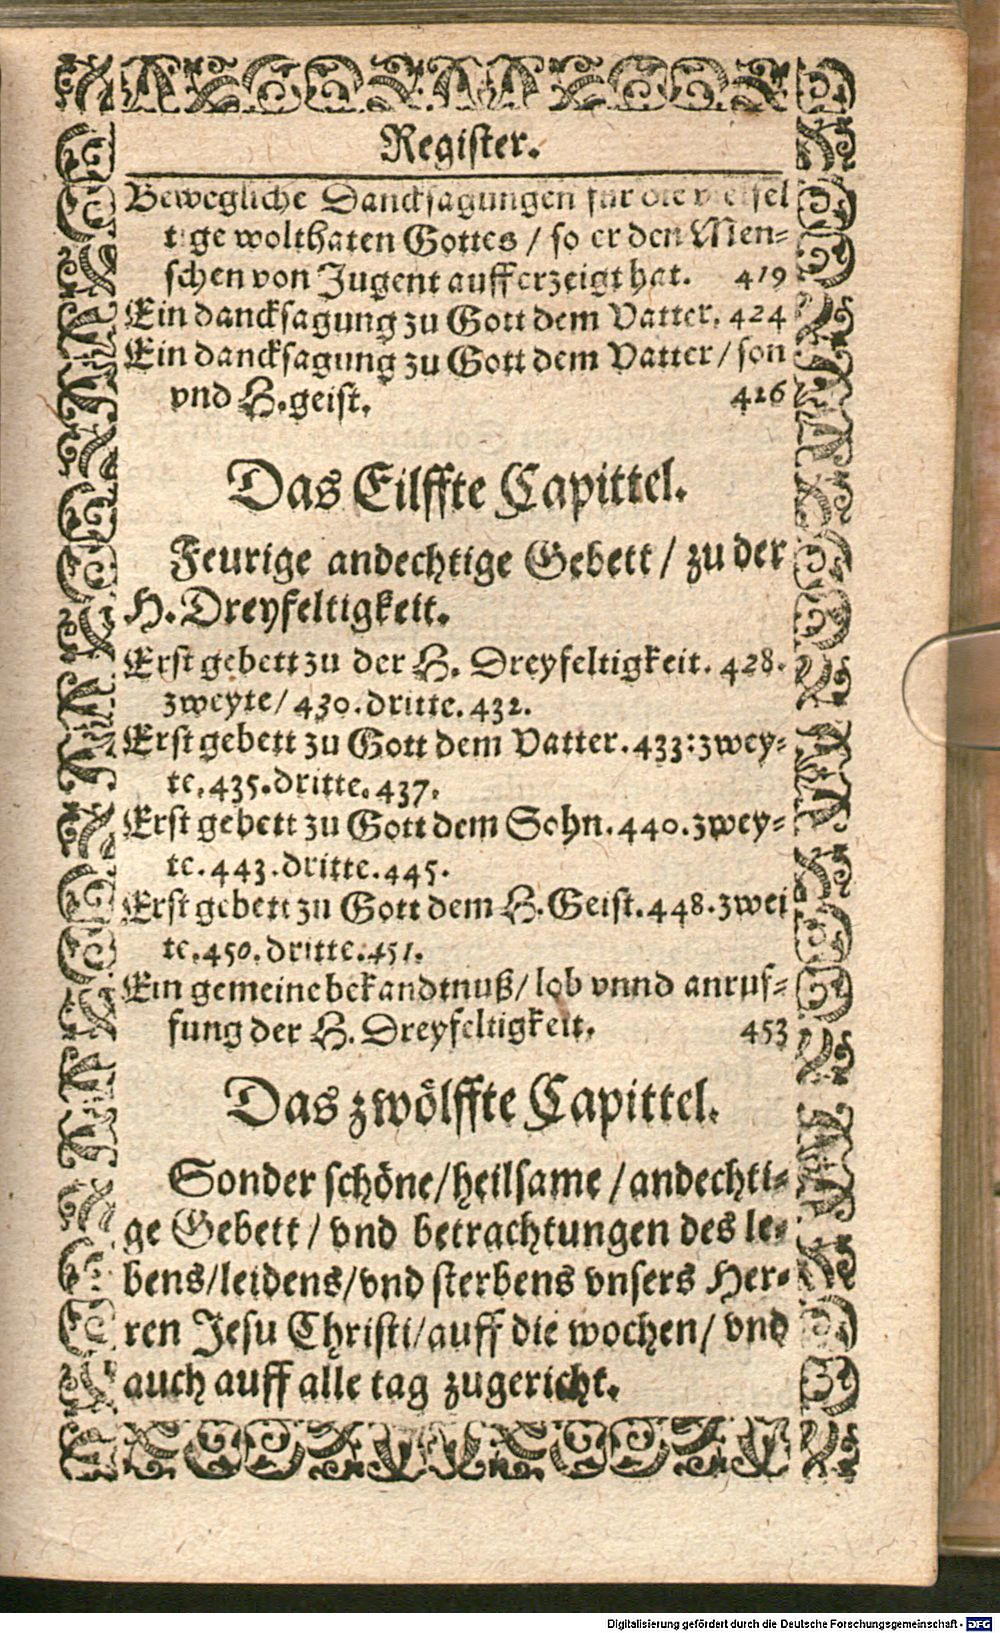 Register.
Bewegliche Dancksagungen für die vielfel
tige wolthaten Gottes / so er den Men-
schen von Jugent auff erzeigt hat. 419
Ein dancksagung zu Gott dem Vatter. 424
Ein dancksagung zu Gott dem Vatter / son
vnd H. geist. 426
Das Eilffte Capittel.
Feurige andechtige Gebett / zu der
H. Dreyfeltigkeit.
Erst gebett zu der H. Dreyfeltigkeit. 428.
zweyte / 430. dritte. 432.
Erst gebett zu Gott dem Vatter. 433: zwey-
te. 435. dritte. 437.
Erst gebett zu Gott dem Sohn. 440. zwey-
te. 443. dritte. 445.
Erst gebett zu Gott dem H. Geist. 448. zwei
te. 450. dritte: 451.
Ein gemeine bekandtnuß / lob vnnd anruf-
fung der H. Dreyfeltigkeit. 453
Das zwölffte Capittel.
Sonder schöne / heilsame / andechti-
ge Gebett / vnd betrachtungen des le-
bens / leidens / vnd sterbens vnsers Her-
ren Jesu Christi / auff die wochen / vnd
auch auff alle tag zugericht.
Digitalisierung gefördert durch die Deutsche Forschungsgemeinschaft - DFG